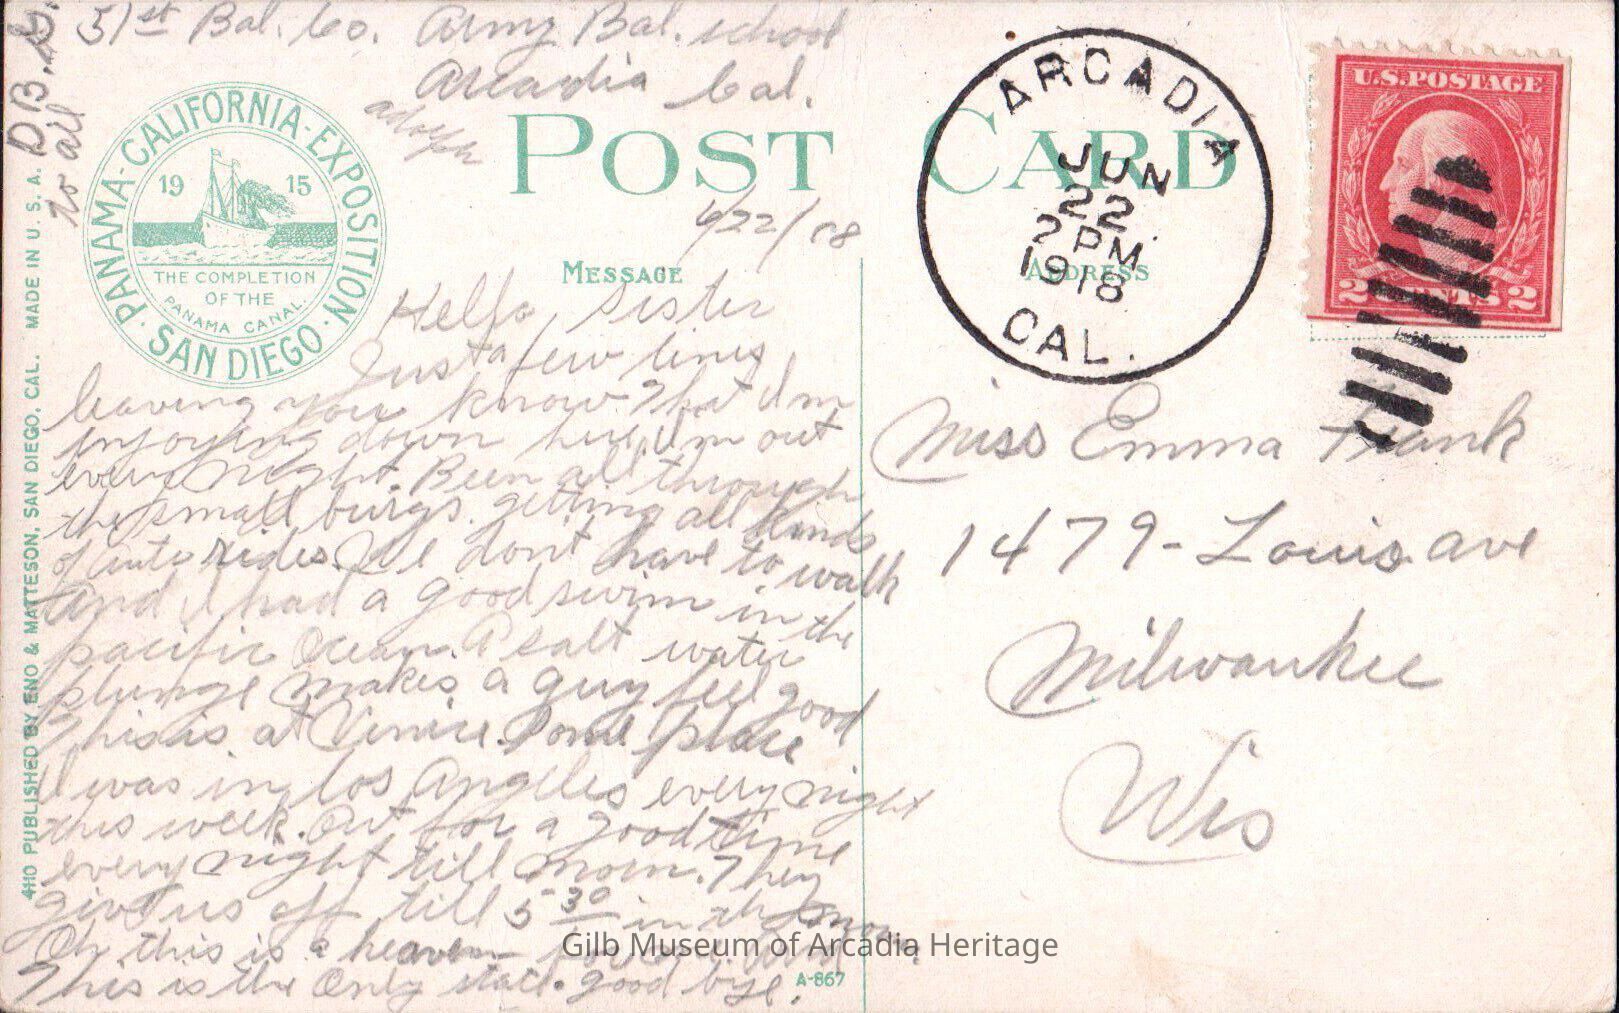 51st Bal. Co. Army Bal. school
Arcadia Cal.
adolph
D.B.G.
to all
PANAMA-CALIFORNIA-EXPOSITION
19 15
THE COMPLETION
OF THE
PANAMA CANAL.
SAN DIEGO
4110 PUBLISHED BY ENO & MATTESON, SAN DIEGO, CAL. MADE IN U. S. A.
POST CARD
6/22/18
MESSAGE
Hello, sister
Just a few lines
leaving you know that I'm
enjoying down here, I'm out
every night. Been all through
the small burgs. getting all kinds
of auto rides. We don't have to walk
And I had a good swim in the
pacific Ocean. A salt water
plunge makes a guy feel good
This is at Venice. Some place
I was in Los Angeles every night
this week. Out for a good time
every night till morn. They
give us off till 5 30 in the morn.
Oh this is a heaven
This is the Only state. good bye.
A-867
ARCADIA
JUN
22
2 PM
1918
CAL.
ADDRESS
U.S. POSTAGE
2 CENTS 2
Miss Emma Frank
1479 - Louis ave
Milwaukee
Wis
Gilb Museum of Arcadia Heritage